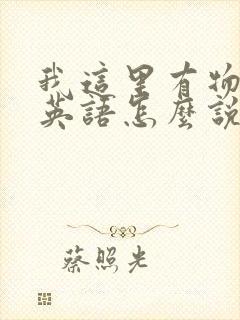 我這里有物
英語怎麼說
蔡照光